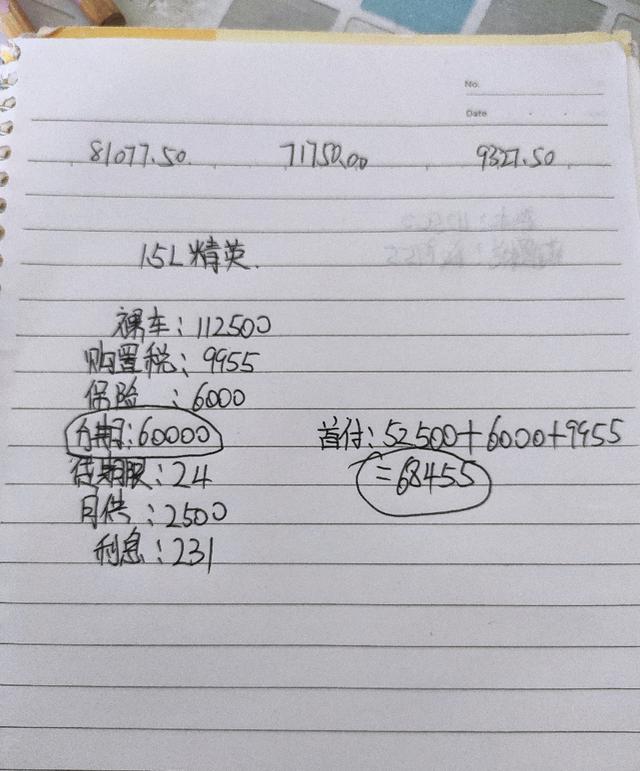 No.
Date
81077.50 71750.00 9327.50
1.5L精英.
裸车:112500
购置税:9955
保险:6000
分期:60000 首付:52500+6000+9955
贷期限:24 =68455
月供:2500
利息:231